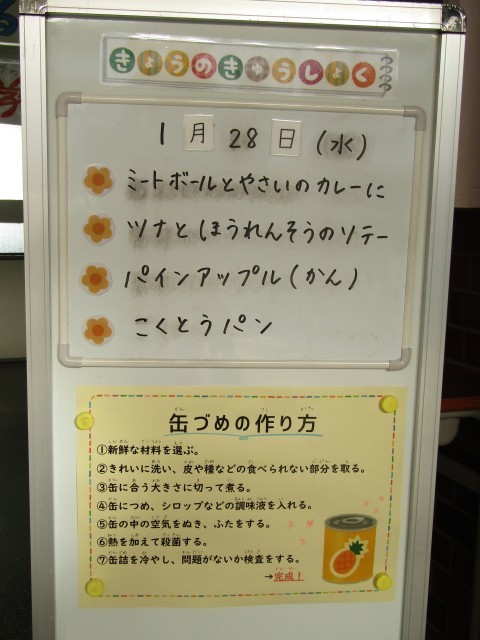 きょうのきゅうしょく
1月28日(水)
ミートボールとやさいのカレーに
ツナとほうれんそうのソテー
パインアップル(かん)
こくとうパン
缶づめの作り方
①新鮮な材料を選ぶ。
②きれいに洗い、皮や種などの食べられない部分を取る。
③缶に合う大きさに切って煮る。
④缶につめ、シロップなどの調味液を入れる。
⑤缶の中の空気をぬき、ふたをする。
⑥熱を加えて殺菌する。
⑦缶詰を冷やし、問題がないか検査をする。
→完成!